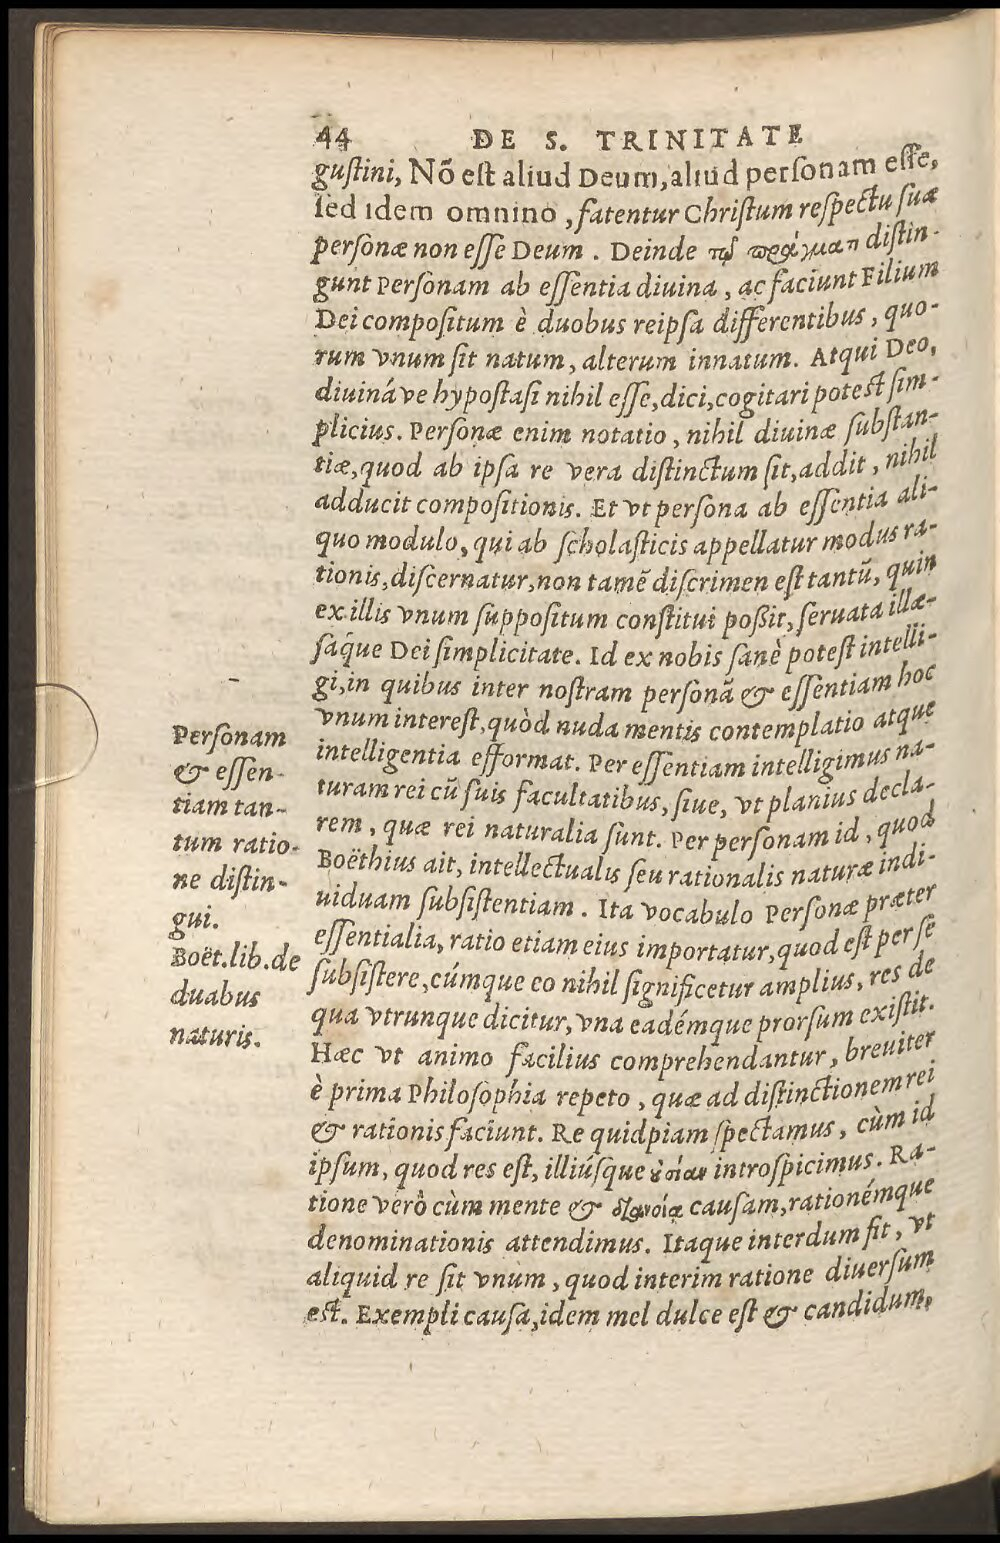 44 DE S. TRINITATE
gustini, Nõ est aliud Deum, aliud personam esse,
sed idem omnino, fatentur Christum respectu suæ
personæ non esse Deum. Deinde τῷ πράγματι distin-
gunt Personam ab essentia diuina, ac faciunt Filium
Dei compositum è duobus reipsa differentibus, quo-
rum vnum sit natum, alterum innatum. Atqui Deo,
diuináve hypostasi nihil esse, dici, cogitari potest sim-
plicius. Personæ enim notatio, nihil diuinæ substan-
tiæ, quod ab ipsa re vera distinctum sit, addit, nihil
adducit compositionis. Et vt persona ab essentia ali-
quo modulo, qui ab scholasticis appellatur modus ra-
tionis, discernatur, non tamẽ discrimen est tantũ, quin
ex illis vnum suppositum constitui possit, seruata illæ-
saq́ue Dei simplicitate. Id ex nobis sanè potest intelli-
gi, in quibus inter nostram personã & essentiam hoc
vnum interest, quòd nuda mentis contemplatio atque
intelligentia efformat. Per essentiam intelligimus na-
turam rei cũ suis facultatibus, siue, vt planius decla-
rem, quæ rei naturalia sunt. Per personam id, quod
Boëthius ait, intellectualis seu rationalis naturæ indi-
uiduam subsistentiam. Ita vocabulo Personæ præter
essentialia, ratio etiam eius importatur, quod est per se
subsistere, cúmque eo nihil significetur amplius, res de
qua vtrunque dicitur, vna eadémque prorsum existit.
Hæc vt animo facilius comprehendantur, breuiter
è prima Philosophia repeto, quæ ad distinctionem rei
& rationis faciunt. Re quidpiam spectamus, cùm id
ipsum, quod res est, illiúsque οὐσίαν introspicimus. Ra-
tione verò cùm mente & διανοίᾳ causam, rationémque
denominationis attendimus. Itaque interdum fit, vt
aliquid re sit vnum, quod interim ratione diuersum
est. Exempli causa, idem mel dulce est & candidum,
Personam
& essen-
tiam tan-
tum ratio-
ne distin-
gui.
Boët. lib. de
duabus
naturis.